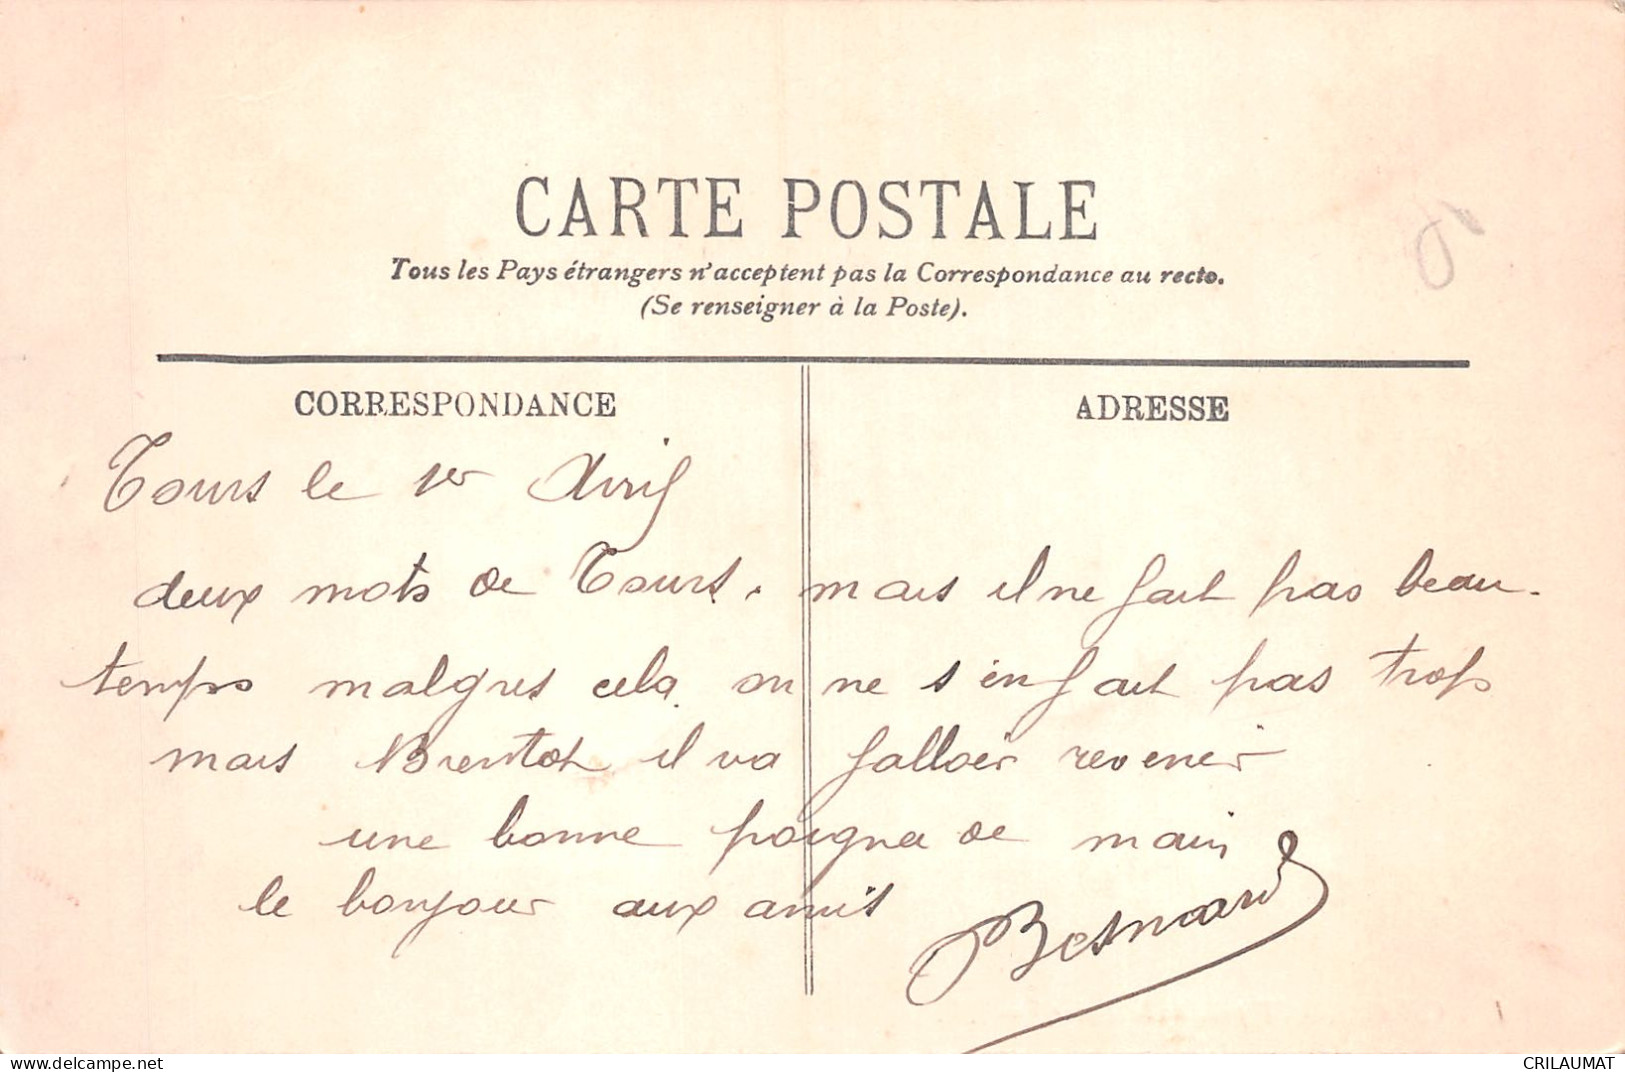 CARTE POSTALE
Tous les Pays étrangers n'acceptent pas la Correspondance au recto.
(Se renseigner à la Poste).
CORRESPONDANCE
ADRESSE
Tours le 1er Avril
deux mots de Tours. mais il ne fait pas beau-
temps malgres cela on ne s'en fait pas trop
mais Bientot il va falloir revenir
une bonne poignee de main
le bonjour aux amis
Besnard
www.delcampe.net
CRILAUMAT